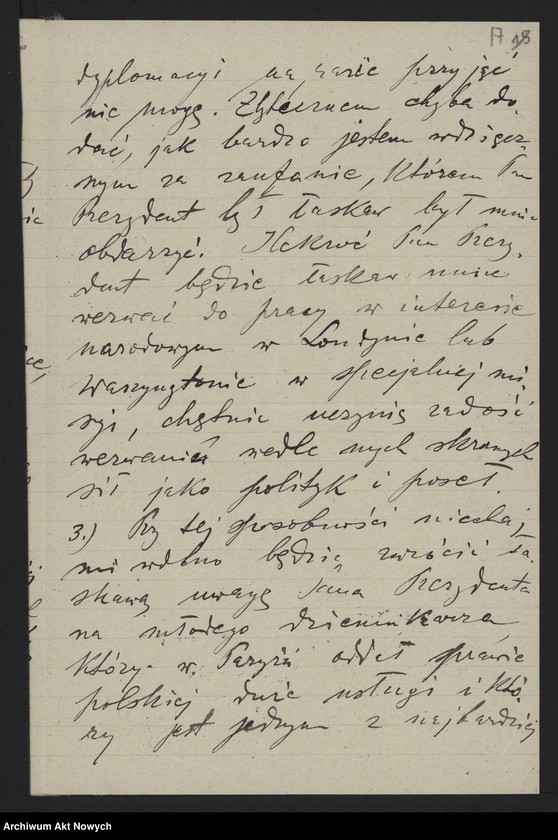 A 18
dyplomacyi na razie przyjąć
nie mogę. Zbytecznem chyba do-
dać, jak bardzo jestem wdzięcz-
nym za zaufanie, którem Pan
Prezydent był łaskaw był mnie
obdarzyć. Ilekroć Pan Prezy-
dent będzie łaskaw mnie
wezwać do pracy w interesie
narodowym w Londynie lub
Waszyngtonie w specjalnej mi-
syi, chętnie uczynię zadość
wezwaniu wedle mych skromnych
sił jako polityk i poseł.
3.) Przy tej sposobności niechaj
mi wolno będzie zwrócić ła-
skawą uwagę Pana Prezydenta
na młodego dziennikarza,
który w Paryżu oddał sprawie
polskiej duże usługi i któ-
ry jest jednym z najbardziej
Archiwum Akt Nowych